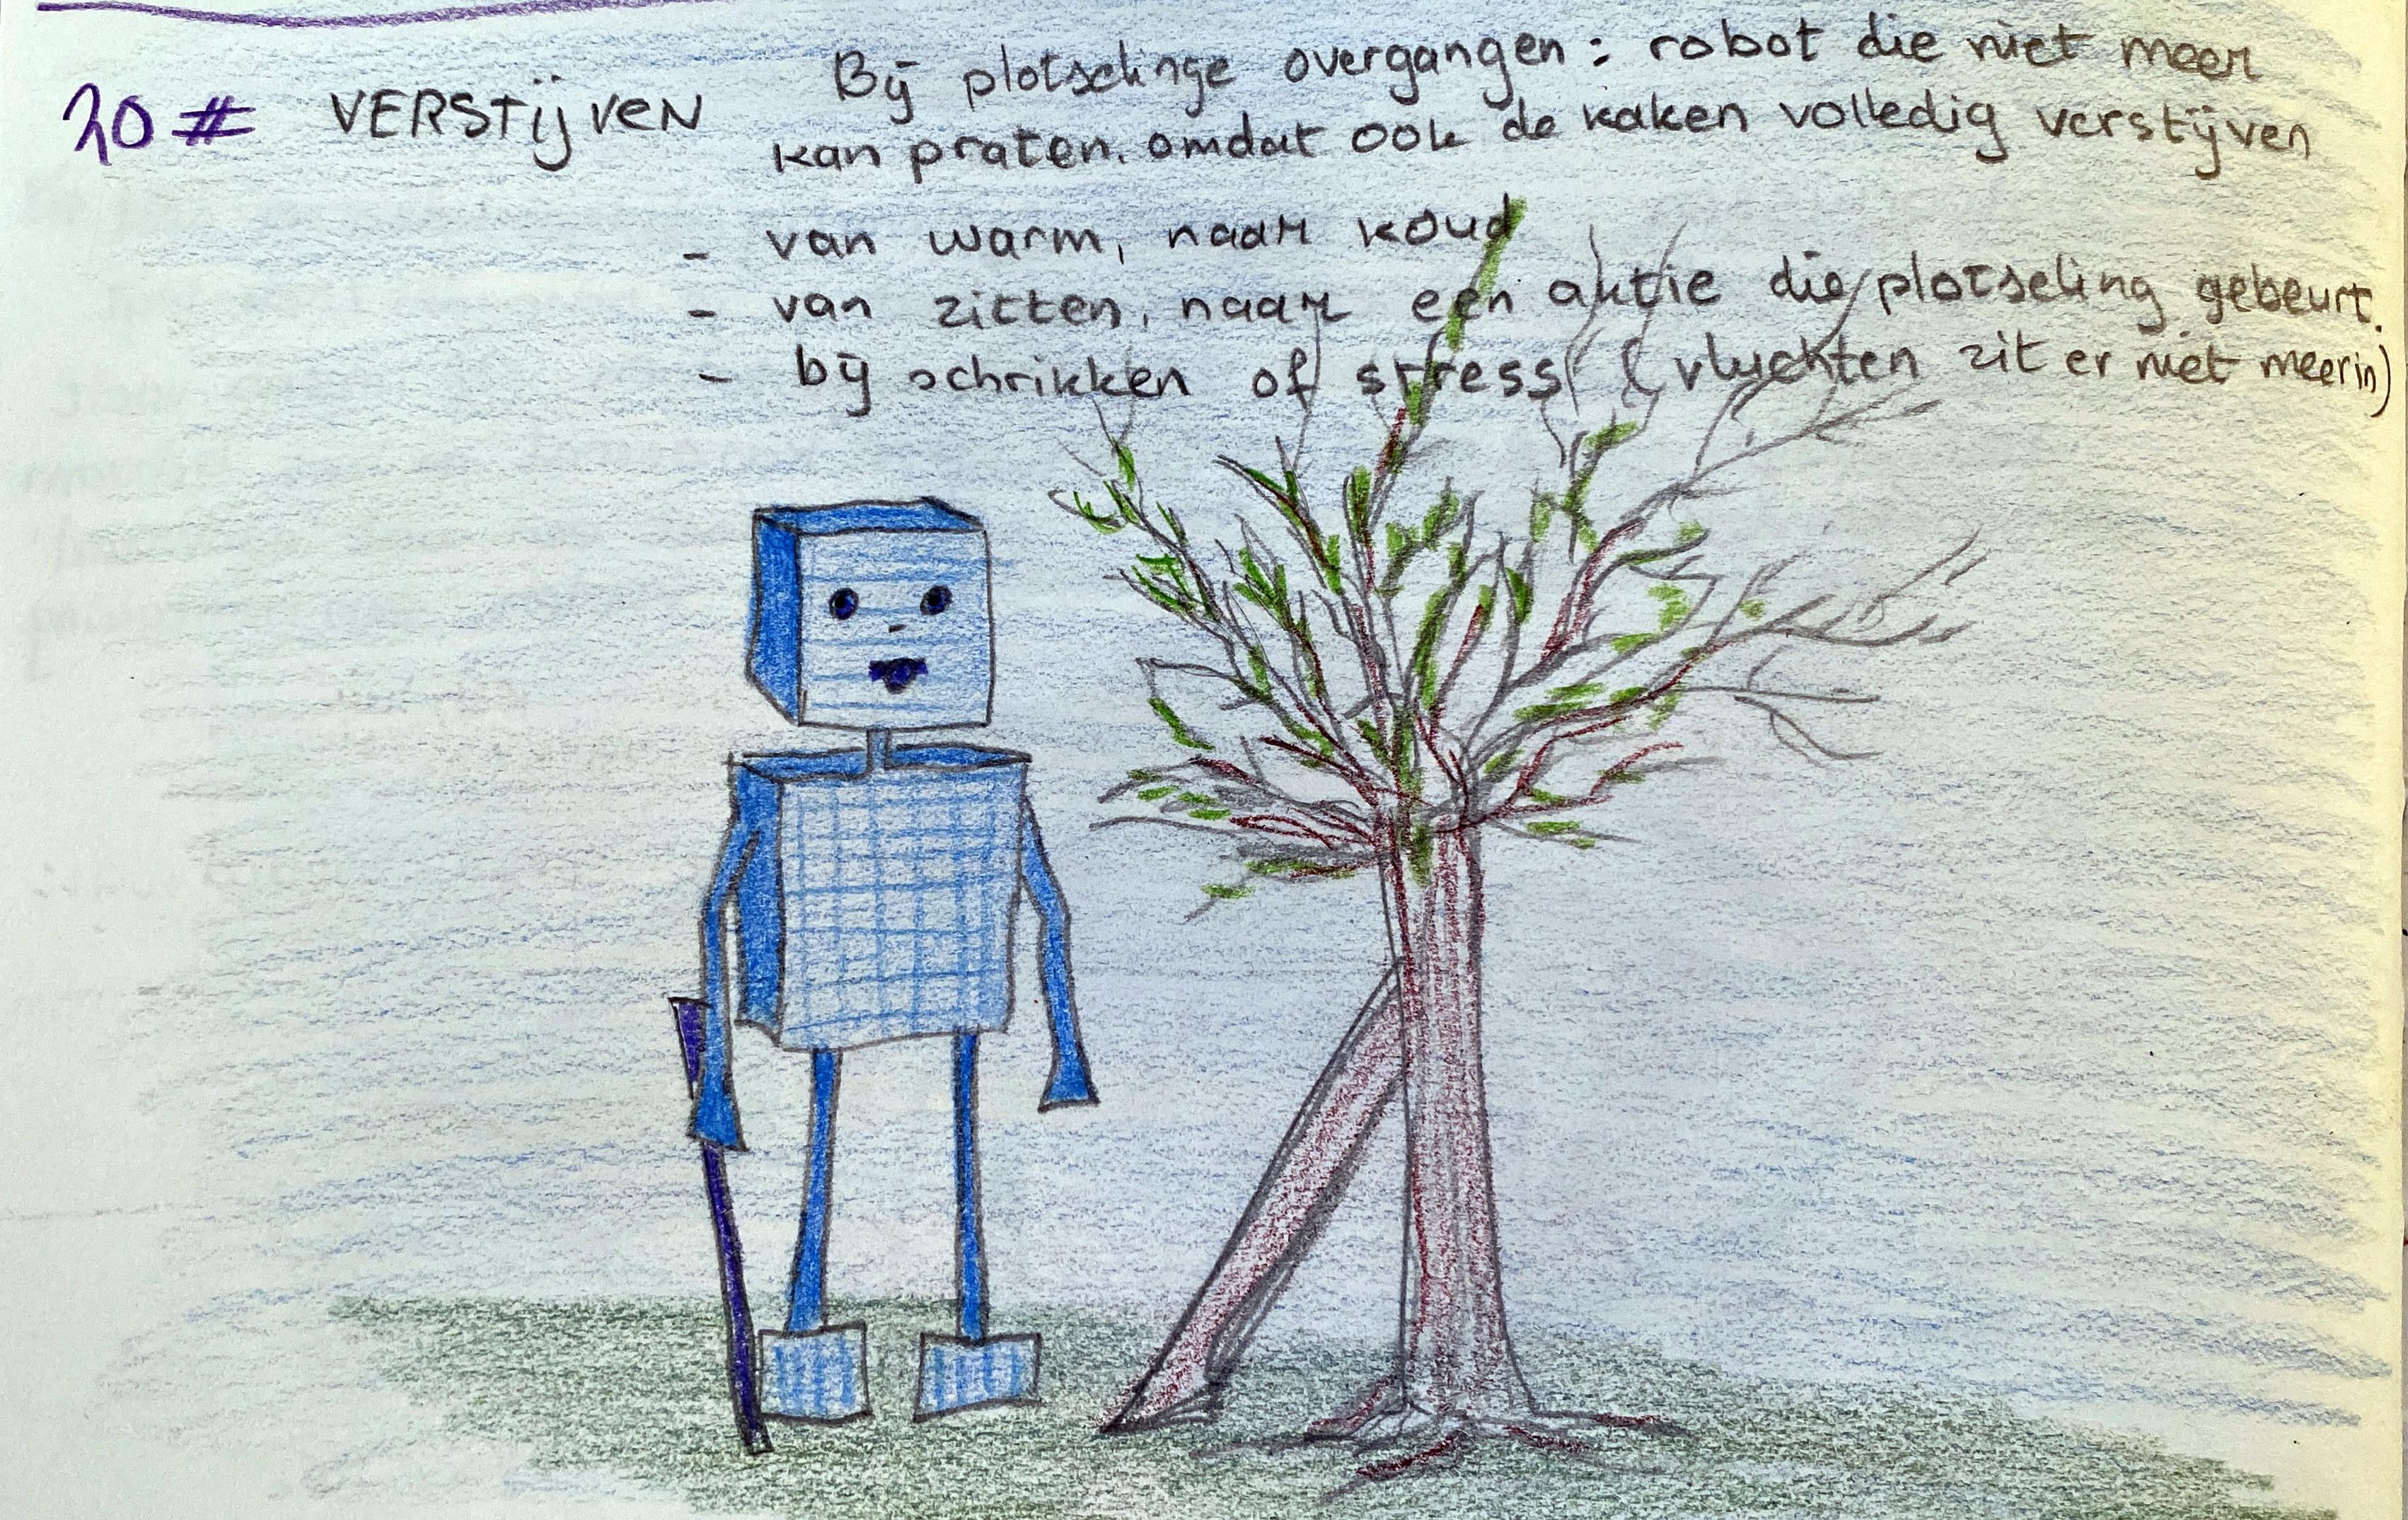 20# VERSTijVEN
Bij plotselinge overgangen: robot die niet meer
kan praten. omdat ook de kaken volledig verstijven
- van warm, naar koud
- van zitten, naar een aktie die plotseling gebeurt.
- bij schrikken of stress (vluchten zit er niet meer in)